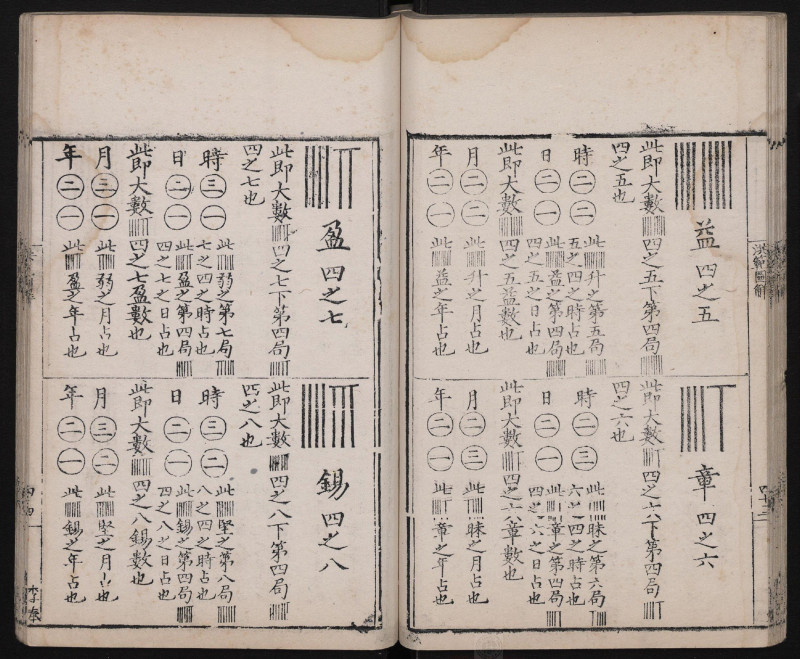 益 四之五
此即大數四之五下第四局
四之五也
時 二 二 此升之第五局
五之四之時占也
日 二 一 此益之第四局
四之五之日占也
此即大數四之五益數也
月 二 二 此升之月占也
年 二 一 此益之年占也
章 四之六
此即大數四之六下第四局
四之六也
時 二 三 此昧之第六局
六之四之時占也
日 二 一 此章之第四局
四之六之日占也
此即大數四之六章數也
月 二 三 此昧之月占也
年 二 一 此章之年占也
洪範圖解
盈 四之七
此即大數四之七下第四局
四之七也
時 三 一 此弱之第七局
七之四之時占也
日 二 一 此盈之第四局
四之七之日占也
此即大數四之七盈數也
月 三 一 此弱之月占也
年 二 一 此盈之年占也
錫 四之八
此即大數四之八下第四局
四之八也
時 三 二 此堅之第八局
八之四之時占也
日 二 一 此錫之第四局
四之八之日占也
此即大數四之八錫數也
月 三 二 此堅之月占也
年 二 一 此錫之年占也